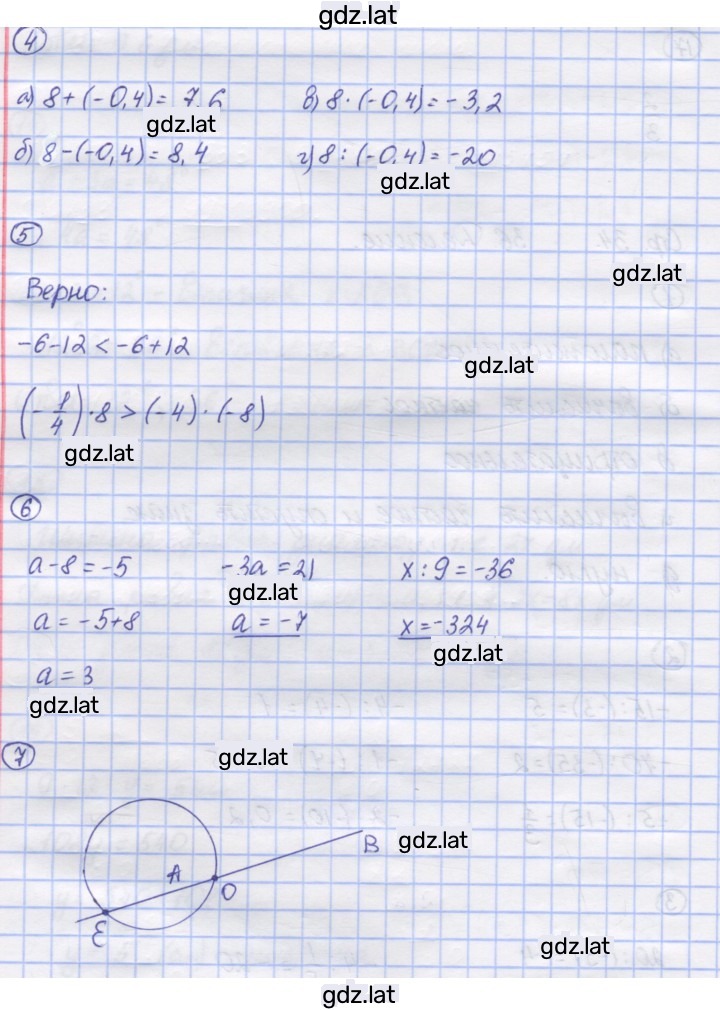 gdz.lat
4
а) 8 + (-0,4) = 7,6 в) 8 · (-0,4) = -3,2
gdz.lat
б) 8 - (-0,4) = 8,4 г) 8 : (-0.4) = -20
gdz.lat
5
gdz.lat
Верно:
-6-12 < -6+12
gdz.lat
(-1/4) · 8 > (-4) · (-8)
gdz.lat
6
a - 8 = -5 -3a = 21 x : 9 = -36
gdz.lat
a = -5+8 a = -7 x = -324
gdz.lat
a = 3
gdz.lat
7
gdz.lat
B
gdz.lat
A
O
E
gdz.lat
gdz.lat